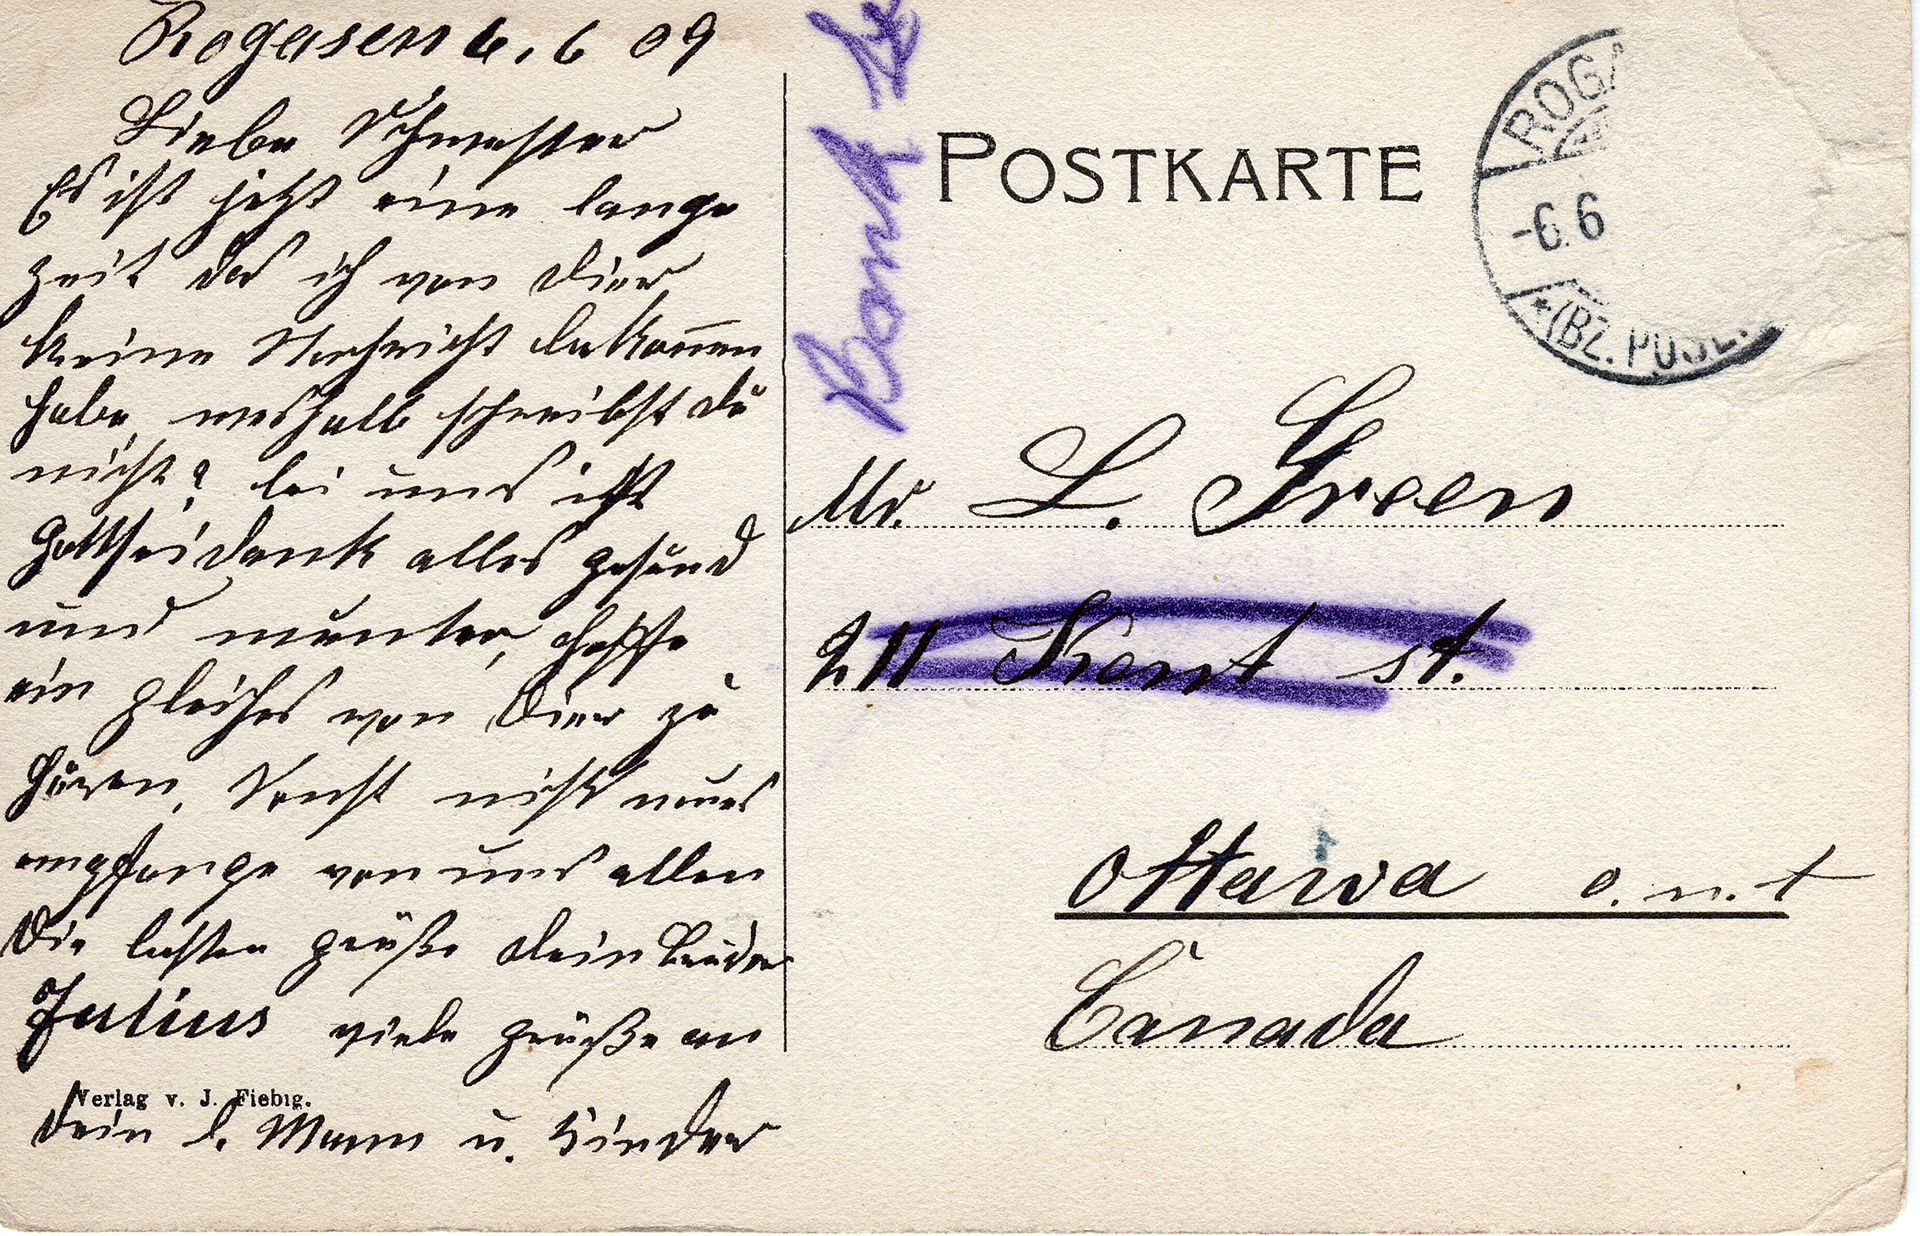 Rogasen 6. 6 09
Liebe Schwester
Es ist jetzt eine lange
zeit das ich von dier
keine Nachricht bekom̅en
habe, weshalb schreibst du
nicht? bei uns ist
Gottseidank alles gesund
und munter, hoffe
ein gleiches von Dier zu
hören, Sonst nicht neues
empfange von uns allen
die besten grüße dein Bruder
Julius viele grüße an
Verlag v. J. Fiebig.
dein l. Mann u. Kinder
Bank
POSTKARTE
ROGA
-6.6
*(BZ. POSE
Mr. L. Green
211 Kent st.
Ottawa o.n.t
Canada